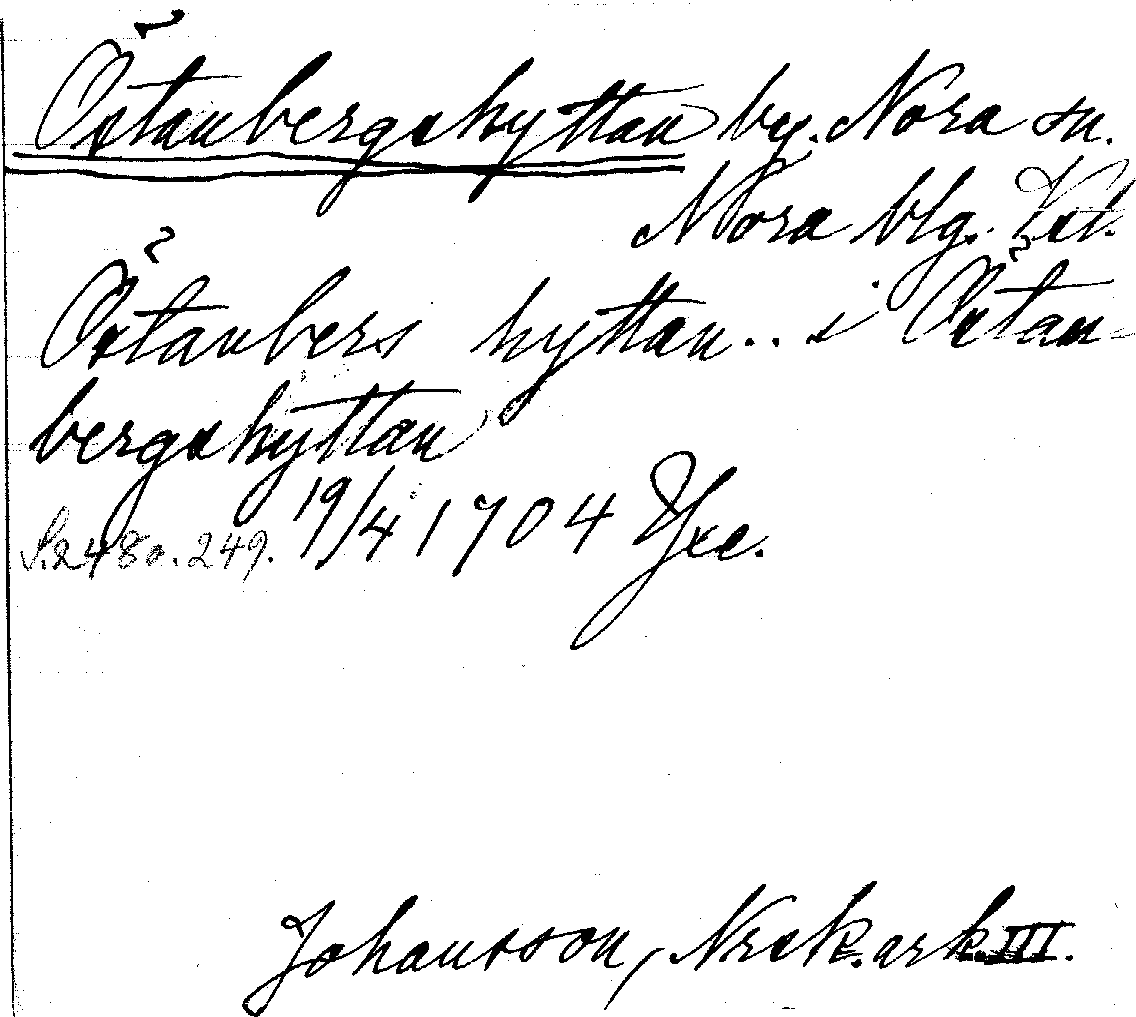 Östanbergshyttan by. Nora sn.
Nora blg. Vstl.
Östanbers hyttan .. i Östan-
bergshyttan
S. 248 o. 249. 19/4 1704 Yxe.
Johansson, Nrsk. ark. III.